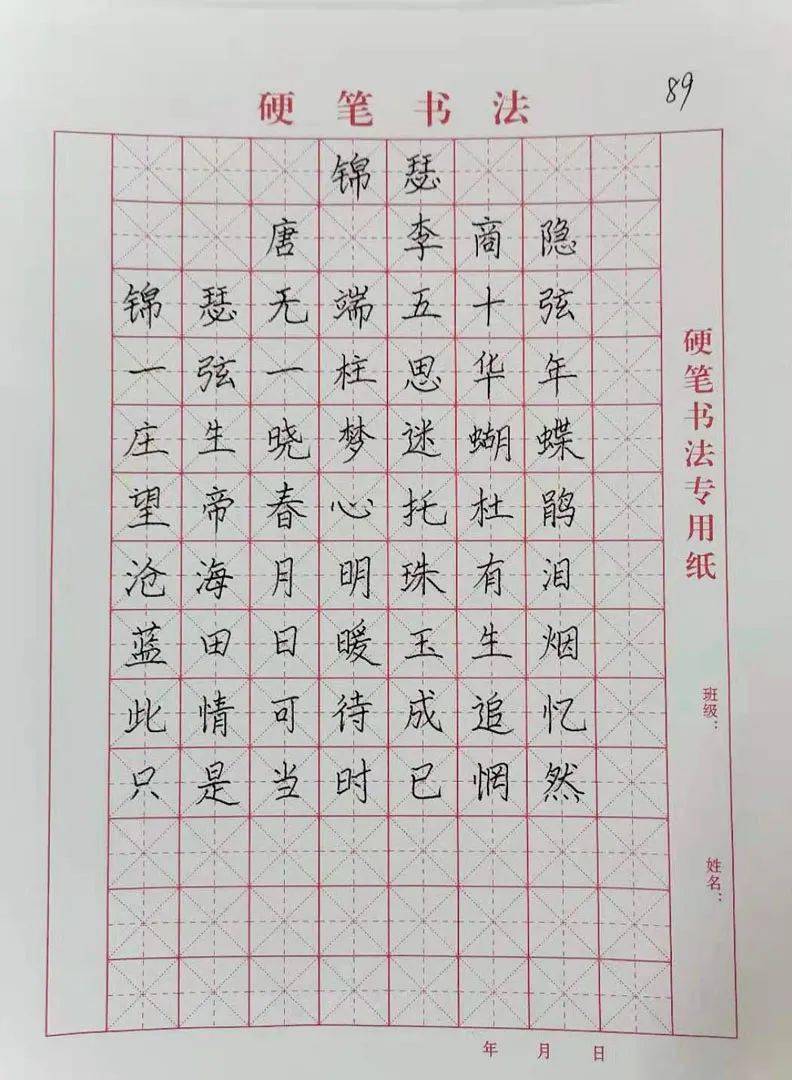 89
硬笔书法
锦瑟
唐 李商隐
锦瑟无端五十弦
一弦一柱思华年
庄生晓梦迷蝴蝶
望帝春心托杜鹃
沧海月明珠有泪
蓝田日暖玉生烟
此情可待成追忆
只是当时已惘然
硬笔书法专用纸
班级：
姓名：
年 月 日